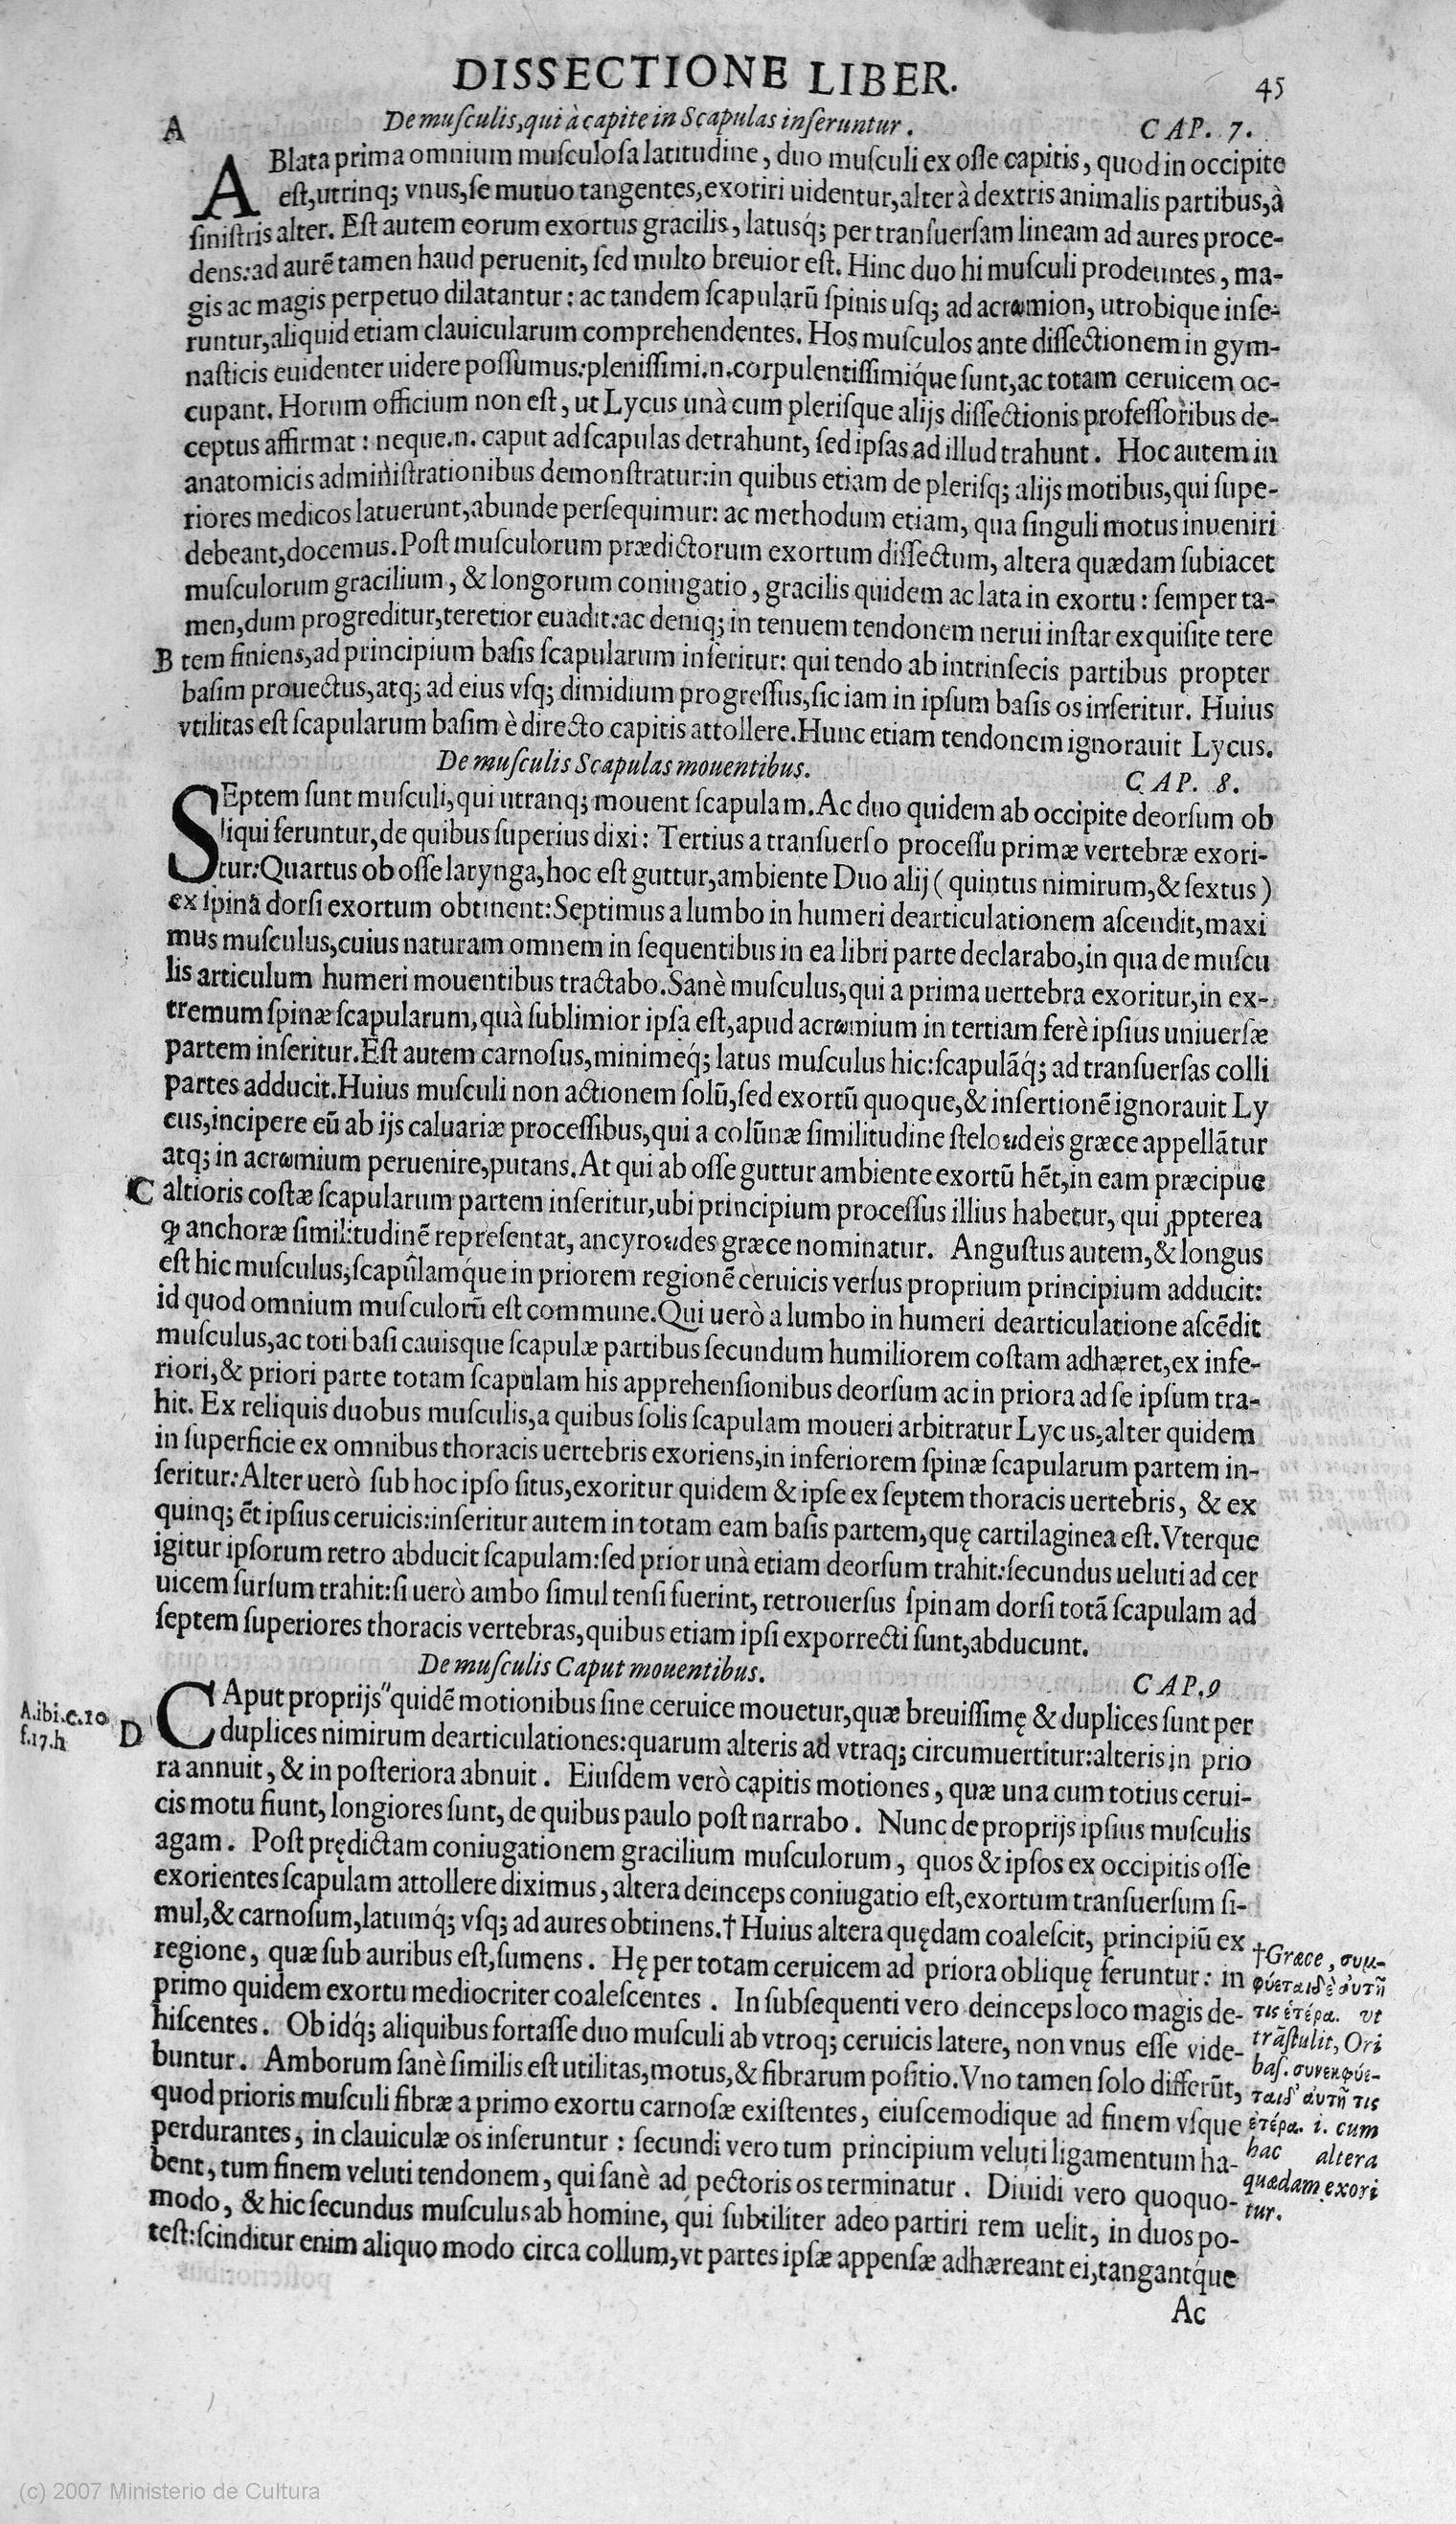 DISSECTIONE LIBER. 45
A De muſculis, qui à capite in Scapulas inſeruntur. CAP. 7.
ABlata prima omnium muſculoſa latitudine, duo muſculi ex oſſe capitis, quod in occipite
eſt, utrinq; vnus, ſe mutuo tangentes, exoriri uidentur, alter à dextris animalis partibus, à
ſiniſtris alter. Eſt autem eorum exortus gracilis, latusq́; per tranſuerſam lineam ad aures proce-
dens: ad aurẽ tamen haud peruenit, ſed multo breuior eſt. Hinc duo hi muſculi prodeuntes, ma-
gis ac magis perpetuo dilatantur: ac tandem ſcapularũ ſpinis uſq; ad acrωmion, utrobique inſe-
runtur, aliquid etiam clauicularum comprehendentes. Hos muſculos ante diſſectionem in gym-
naſticis euidenter uidere poſſumus: pleniſſimi.n. corpulentiſſimiq́ue ſunt, ac totam ceruicem oc-
cupant. Horum officium non eſt, ut Lycus unà cum pleriſque alijs diſſectionis profeſſoribus de-
ceptus affirmat: neque.n. caput ad ſcapulas detrahunt, ſed ipſas ad illud trahunt. Hoc autem in
anatomicis adminiſtrationibus demonſtratur: in quibus etiam de pleriſq; alijs motibus, qui ſupe-
riores medicos latuerunt, abunde perſequimur: ac methodum etiam, qua ſinguli motus inueniri
debeant, docemus. Poſt muſculorum prædictorum exortum diſſectum, altera quædam ſubiacet
muſculorum gracilium, & longorum coniugatio, gracilis quidem ac lata in exortu: ſemper ta-
men, dum progreditur, teretior euadit: ac deniq; in tenuem tendonem nerui inſtar exquiſite tere
B tem finiens, ad principium baſis ſcapularum inſeritur: qui tendo ab intrinſecis partibus propter
baſim prouectus, atq; ad eius vſq; dimidium progreſſus, ſic iam in ipſum baſis os inſeritur. Huius
vtilitas eſt ſcapularum baſim è directo capitis attollere. Hunc etiam tendonem ignorauit Lycus.
De muſculis Scapulas mouentibus. CAP. 8.
SEptem ſunt muſculi, qui utranq; mouent ſcapulam. Ac duo quidem ab occipite deorſum ob
liqui feruntur, de quibus ſuperius dixi: Tertius a tranſuerſo proceſſu primæ vertebræ exori-
tur: Quartus ob oſſe larynga, hoc eſt guttur, ambiente Duo alij (quintus nimirum, & ſextus)
ex ſpina dorſi exortum obtinent: Septimus a lumbo in humeri dearticulationem aſcendit, maxi
mus muſculus, cuius naturam omnem in ſequentibus in ea libri parte declarabo, in qua de muſcu
lis articulum humeri mouentibus tractabo. Sanè muſculus, qui a prima uertebra exoritur, in ex-
tremum ſpinæ ſcapularum, quà ſublimior ipſa eſt, apud acrωmium in tertiam ferè ipſius uniuerſæ
partem inſeritur. Eſt autem carnoſus, minimeq́; latus muſculus hic: ſcapulãq́; ad tranſuerſas colli
partes adducit. Huius muſculi non actionem ſolũ, ſed exortũ quoque, & inſertionẽ ignorauit Ly
cus, incipere eũ ab ijs caluariæ proceſſibus, qui a colũnæ ſimilitudine ſteloιdeis græce appellãtur
atq; in acrωmium peruenire, putans. At qui ab oſſe guttur ambiente exortũ hẽt, in eam præcipue
C altioris coſtæ ſcapularum partem inſeritur, ubi principium proceſſus illius habetur, qui ꝓpterea
ꝙ anchoræ ſimilitudinẽ repreſentat, ancyroιdes græce nominatur. Anguſtus autem, & longus
eſt hic muſculus, ſcapulamq́ue in priorem regionẽ ceruicis verſus proprium principium adducit:
id quod omnium muſculorũ eſt commune. Qui uerò a lumbo in humeri dearticulatione aſcẽdit
muſculus, ac toti baſi cauisque ſcapulæ partibus ſecundum humiliorem coſtam adhæret, ex infe-
riori, & priori parte totam ſcapulam his apprehenſionibus deorſum ac in priora ad ſe ipſum tra-
hit. Ex reliquis duobus muſculis, a quibus ſolis ſcapulam moueri arbitratur Lycus, alter quidem
in ſuperficie ex omnibus thoracis uertebris exoriens, in inferiorem ſpinæ ſcapularum partem in-
ſeritur: Alter uerò ſub hoc ipſo ſitus, exoritur quidem & ipſe ex ſeptem thoracis uertebris, & ex
quinq; ẽt ipſius ceruicis: inſeritur autem in totam eam baſis partem, quę cartilaginea eſt. Vterque
igitur ipſorum retro abducit ſcapulam: ſed prior unà etiam deorſum trahit: ſecundus ueluti ad cer
uicem ſurſum trahit: ſi uerò ambo ſimul tenſi fuerint, retrouerſus ſpinam dorſi totã ſcapulam ad
ſeptem ſuperiores thoracis vertebras, quibus etiam ipſi exporrecti ſunt, abducunt.
De muſculis Caput mouentibus. CAP. 9
A.ibi.c.10
f.17.h
D CAput proprijs" quidẽ motionibus ſine ceruice mouetur, quæ breuiſſimę & duplices ſunt per
duplices nimirum dearticulationes: quarum alteris ad vtraq; circumuertitur: alteris in prio
ra annuit, & in poſteriora abnuit. Eiuſdem verò capitis motiones, quæ una cum totius cerui-
cis motu fiunt, longiores ſunt, de quibus paulo poſt narrabo. Nunc de proprijs ipſius muſculis
agam. Poſt prędictam coniugationem gracilium muſculorum, quos & ipſos ex occipitis oſſe
exorientes ſcapulam attollere diximus, altera deinceps coniugatio eſt, exortum tranſuerſum ſi-
mul, & carnoſum, latumq́; vſq; ad aures obtinens. † Huius altera quędam coaleſcit, principiũ ex
regione, quæ ſub auribus eſt, ſumens. Hę per totam ceruicem ad priora obliquę feruntur: in
primo quidem exortu mediocriter coaleſcentes. In ſubſequenti vero deinceps loco magis de-
hiſcentes. Ob idq́; aliquibus fortaſſe duo muſculi ab vtroq; ceruicis latere, non vnus eſſe vide-
buntur. Amborum ſanè ſimilis eſt utilitas, motus, & fibrarum poſitio. Vno tamen ſolo differũt,
quod prioris muſculi fibræ a primo exortu carnoſæ exiſtentes, eiuſcemodique ad finem vſque
perdurantes, in clauiculæ os inſeruntur: ſecundi vero tum principium veluti ligamentum ha-
bent, tum finem veluti tendonem, qui ſanè ad pectoris os terminatur. Diuidi vero quoquo-
modo, & hic ſecundus muſculus ab homine, qui ſubtiliter adeo partiri rem uelit, in duos po-
teſt: ſcinditur enim aliquo modo circa collum, vt partes ipſæ appenſæ adhæreant ei, tangantq́ue
†Græce, συμ-
φύεται δὲ αὐτῇ
τις ἑτέρα. vt
trãſtulit, Ori
baſ. συνεκφύε-
ται δ' αὐτῇ τις
ἑτέρα. i. cum
hac altera
quædam exori
tur.
Ac
(c) 2007 Ministerio de Cultura